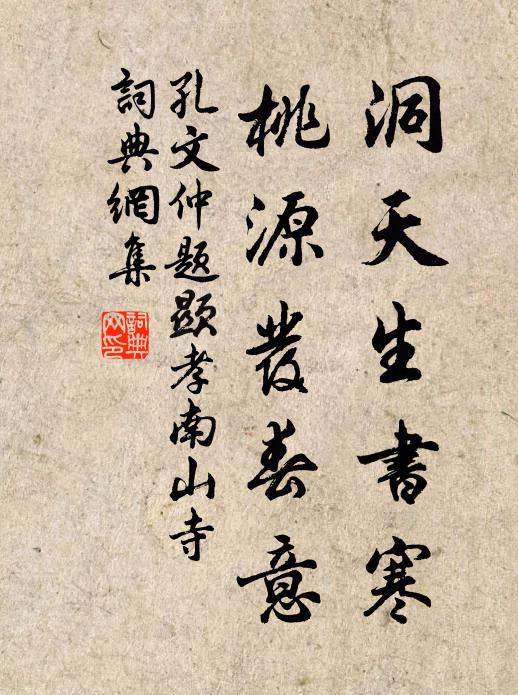 洞天生書寒
桃源發春意
孔文仲題顯孝南山寺
詞典網集
詞典網印